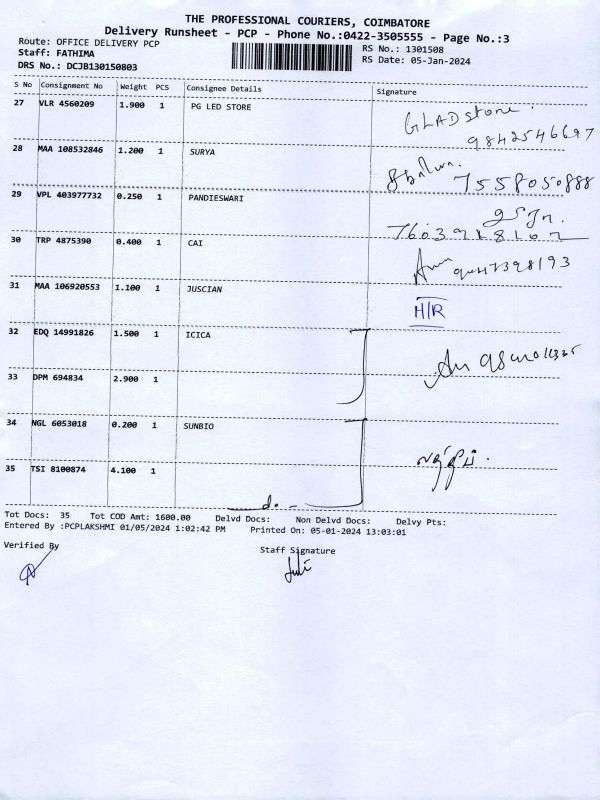 THE PROFESSIONAL COURIERS, COIMBATORE
Delivery Runsheet - PCP - Phone No.:0422-3505555 - Page No.:3
Route: OFFICE DELIVERY PCP
RS No.: 1301508
Staff: FATHIMA
RS Date: 05-Jan-2024
DRS No.: DCJB130150803
S No Consignment No Weight PCS Consignee Details Signature
27 VLR 4560209 1.900 1 PG LED STORE GLADstone.
9842546697
28 MAA 108532846 1.200 1 SURYA 7558050888
29 VPL 403977732 0.250 1 PANDIESWARI
30 TRP 4875390 0.400 1 CAI
31 MAA 106920553 1.100 1 JUSCIAN H/R
32 EDQ 14991826 1.500 1 ICICA
33 DPM 694834 2.900 1
34 NGL 6053018 0.200 1 SUNBIO
35 TSI 8100874 4.100 1
Tot Docs: 35 Tot COD Amt: 1600.00 Delvd Docs: Non Delvd Docs: Delvy Pts:
Entered By :PCPLAKSHMI 01/05/2024 1:02:42 PM Printed On: 05-01-2024 13:03:01
Verified By
Staff Signature